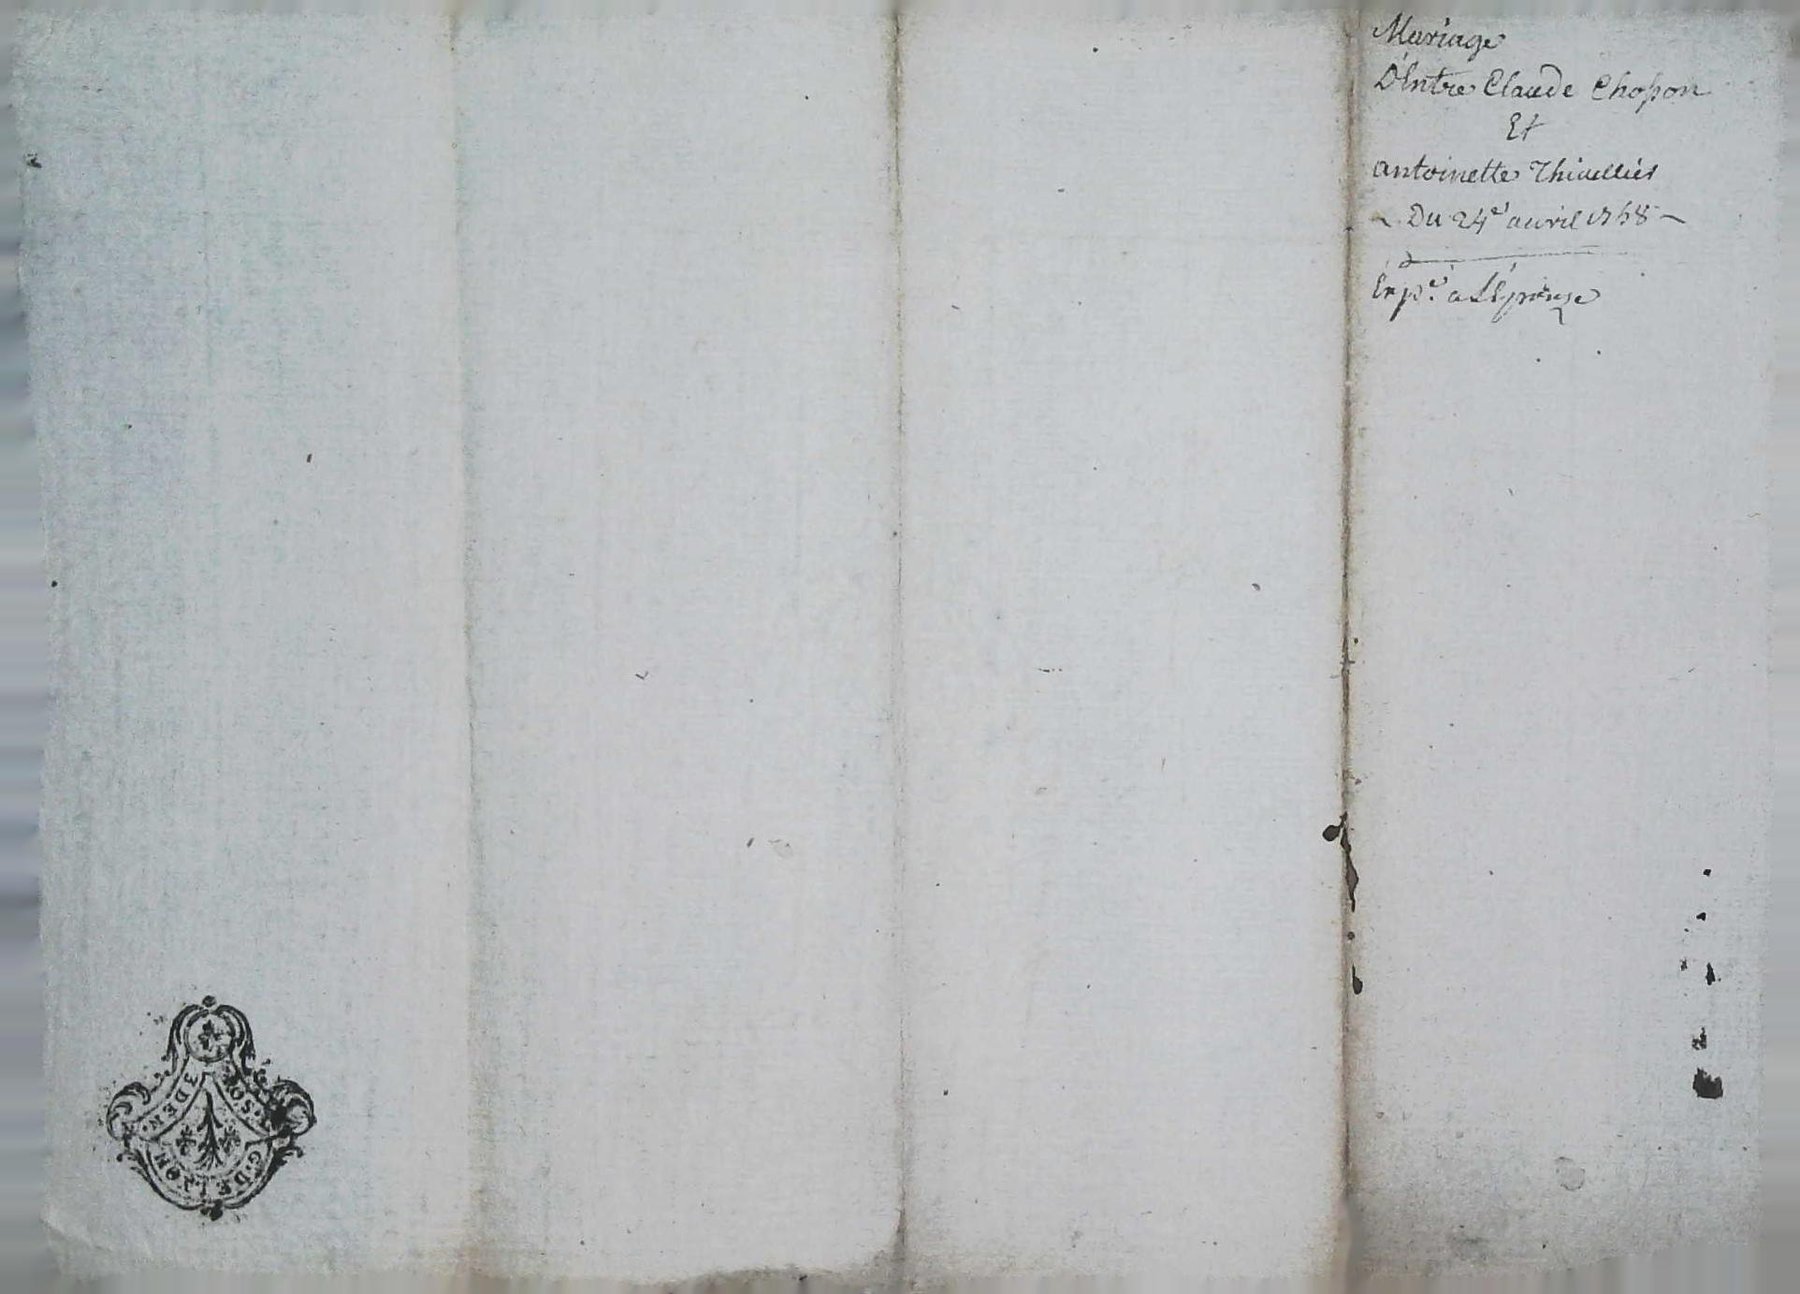 Mariage
D'Entre Claude Chopon
Et
antoinette Thiuellier
Du 24e auril 1768
Exp.é a L'Epouse
3 DEN. SOLS
G. DE LYON